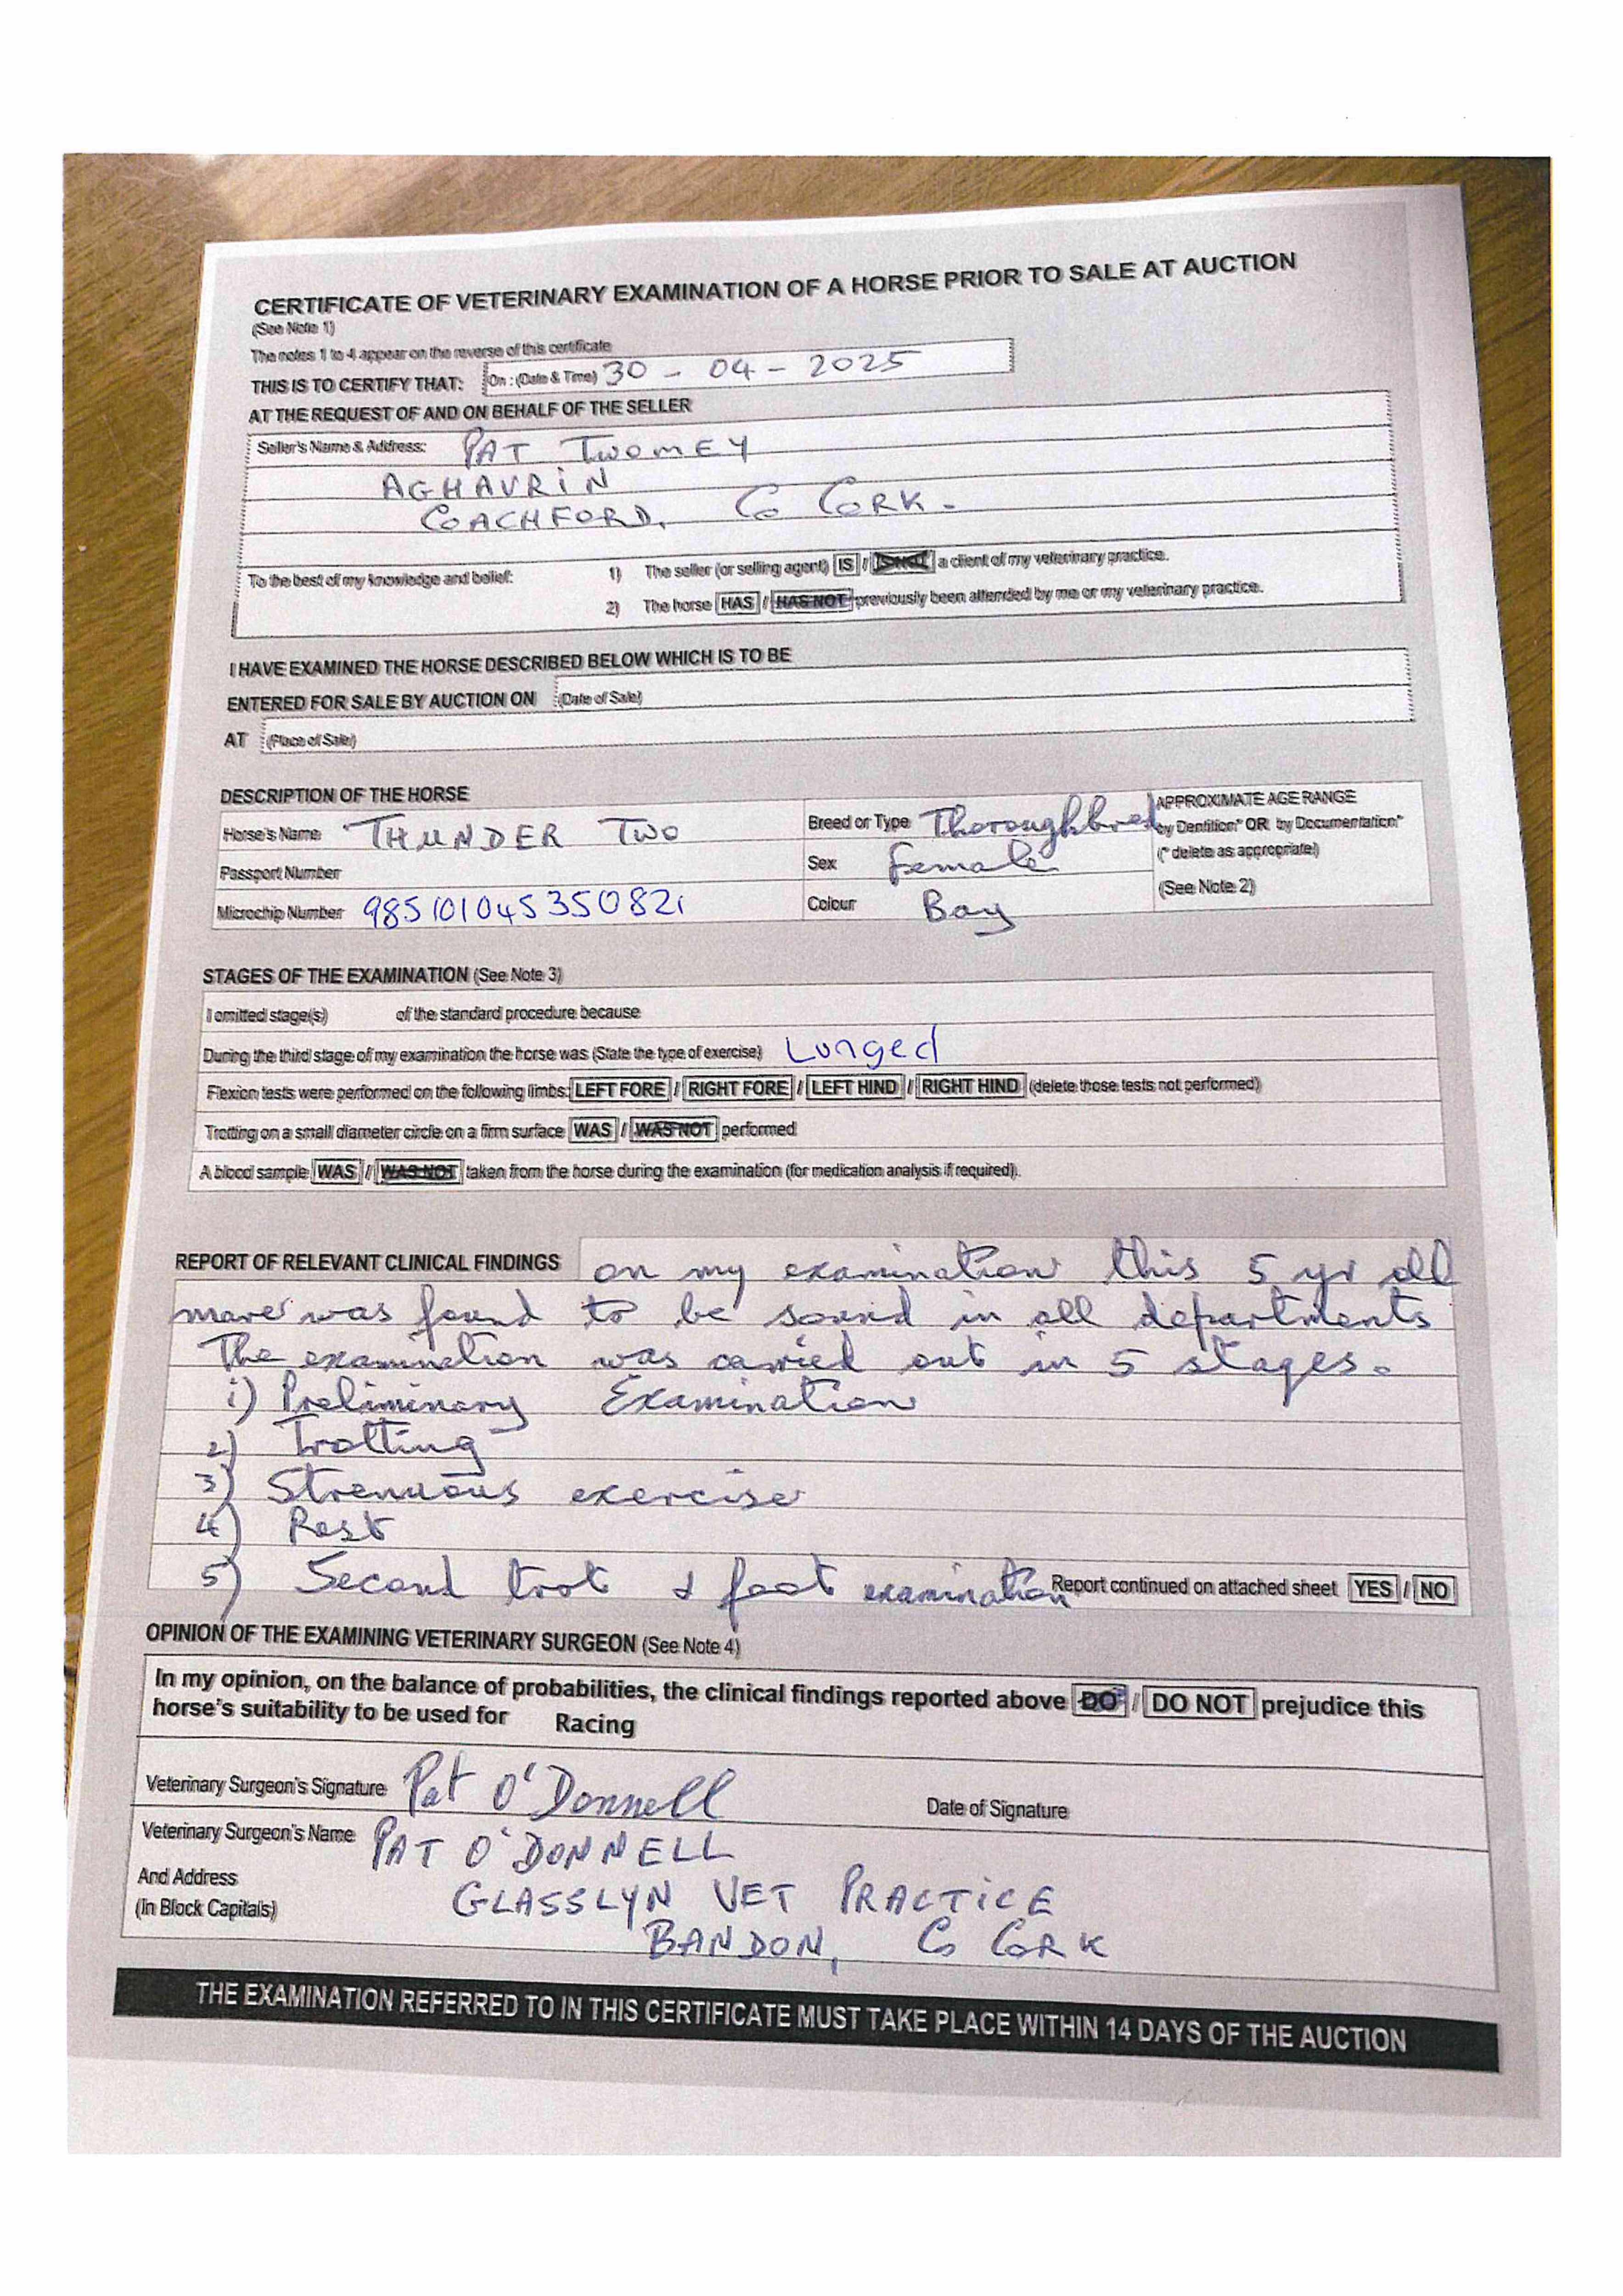 CERTIFICATE OF VETERINARY EXAMINATION OF A HORSE PRIOR TO SALE AT AUCTION
(See Note 1)
The notes 1 to 4 appear on the reverse of this certificate
THIS IS TO CERTIFY THAT: On : (Date & Time) 30 - 04 - 2025
AT THE REQUEST OF AND ON BEHALF OF THE SELLER
Seller's Name & Address: PAT TWOMEY
AGHAVRIN
COACHFORD, Co CORK.
To the best of my knowledge and belief: 1) The seller (or selling agent) IS / IS NOT a client of my veterinary practice.
2) The horse HAS / HAS NOT previously been attended by me or my veterinary practice.
I HAVE EXAMINED THE HORSE DESCRIBED BELOW WHICH IS TO BE
ENTERED FOR SALE BY AUCTION ON (Date of Sale)
AT (Place of Sale)
DESCRIPTION OF THE HORSE
Horse's Name THUNDER TWO Breed or Type Thoroughbred APPROXIMATE AGE RANGE
by Dentition* OR by Documentation*
Passport Number Sex Female (* delete as appropriate)
Microchip Number 985101045350821 Colour Bay (See Note 2)
STAGES OF THE EXAMINATION (See Note 3)
I omitted stage(s) of the standard procedure because
During the third stage of my examination the horse was (State the type of exercise) Lunged
Flexion tests were performed on the following limbs: LEFT FORE / RIGHT FORE / LEFT HIND / RIGHT HIND (delete those tests not performed)
Trotting on a small diameter circle on a firm surface WAS / WAS NOT performed
A blood sample WAS / WAS NOT taken from the horse during the examination (for medication analysis if required).
REPORT OF RELEVANT CLINICAL FINDINGS on my examination this 5 yr old
mare was found to be sound in all departments
The examination was carried out in 5 stages.
1) Preliminary Examination
2) Trotting
3) Strenuous exercise
4) Rest
5) Second trot & foot examination Report continued on attached sheet YES / NO
OPINION OF THE EXAMINING VETERINARY SURGEON (See Note 4)
In my opinion, on the balance of probabilities, the clinical findings reported above DO / DO NOT prejudice this
horse's suitability to be used for Racing
Veterinary Surgeon's Signature Pat O'Donnell Date of Signature
Veterinary Surgeon's Name PAT O'DONNELL
And Address GLASSLYN VET PRACTICE
(In Block Capitals) BANDON, Co CORK
THE EXAMINATION REFERRED TO IN THIS CERTIFICATE MUST TAKE PLACE WITHIN 14 DAYS OF THE AUCTION